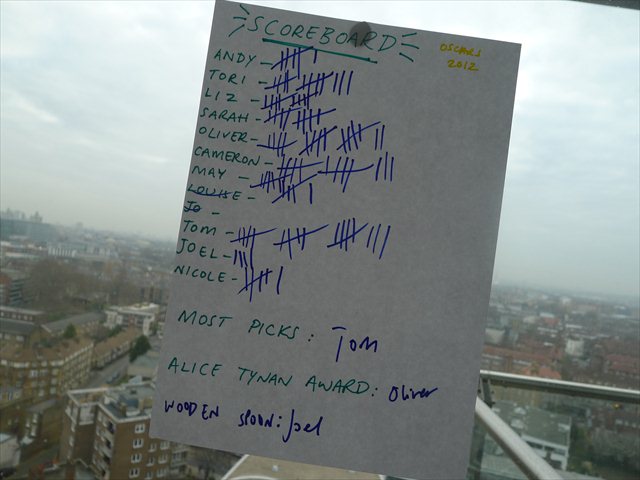 SCOREBOARD
OSCARS
2012
ANDY -
TORI -
LIZ -
SARAH -
OLIVER -
CAMERON -
MAY -
LOUISE -
JO -
TOM -
JOEL -
NICOLE -
MOST PICKS : Tom
ALICE TYNAN AWARD: Oliver
WOODEN SPOON: Joel